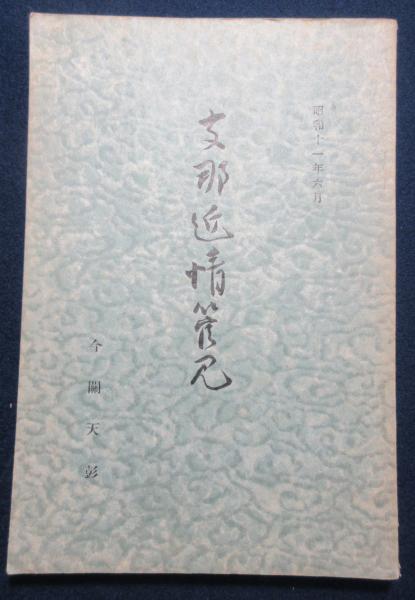 昭和十一年六月
支那近情管見
今關天彭